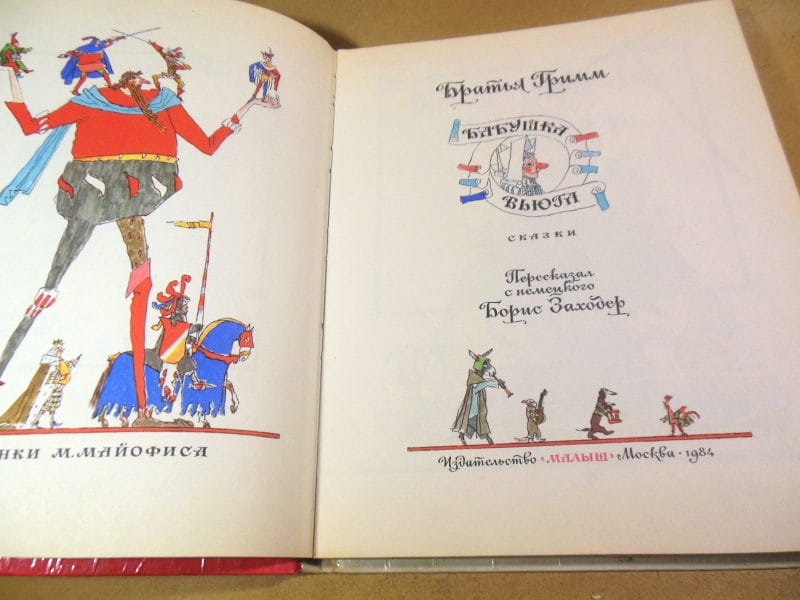 М. МАЙОФИСА
Братья Гримм
БАБУШКА
ВЬЮГА
СКАЗКИ
Пересказал
с немецкого
Борис Заходер
Издательство «МАЛЫШ» Москва · 1984